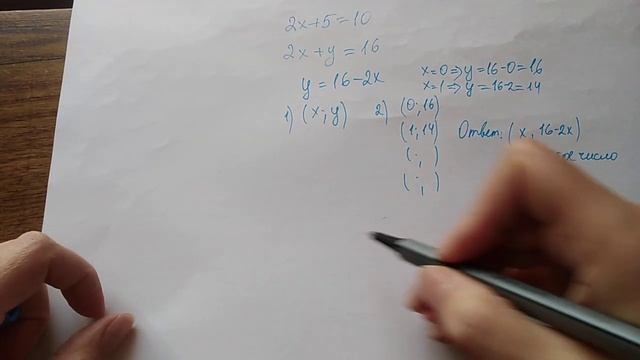 2x+5=10
2x+y=16
y=16-2x
x=0⇒y=16-0=16
x=1⇒y=16-2=14
1) (x;y) 2) (0;16)
(1;14)
( ; )
( ; )
Ответ: (x, 16-2x)
число